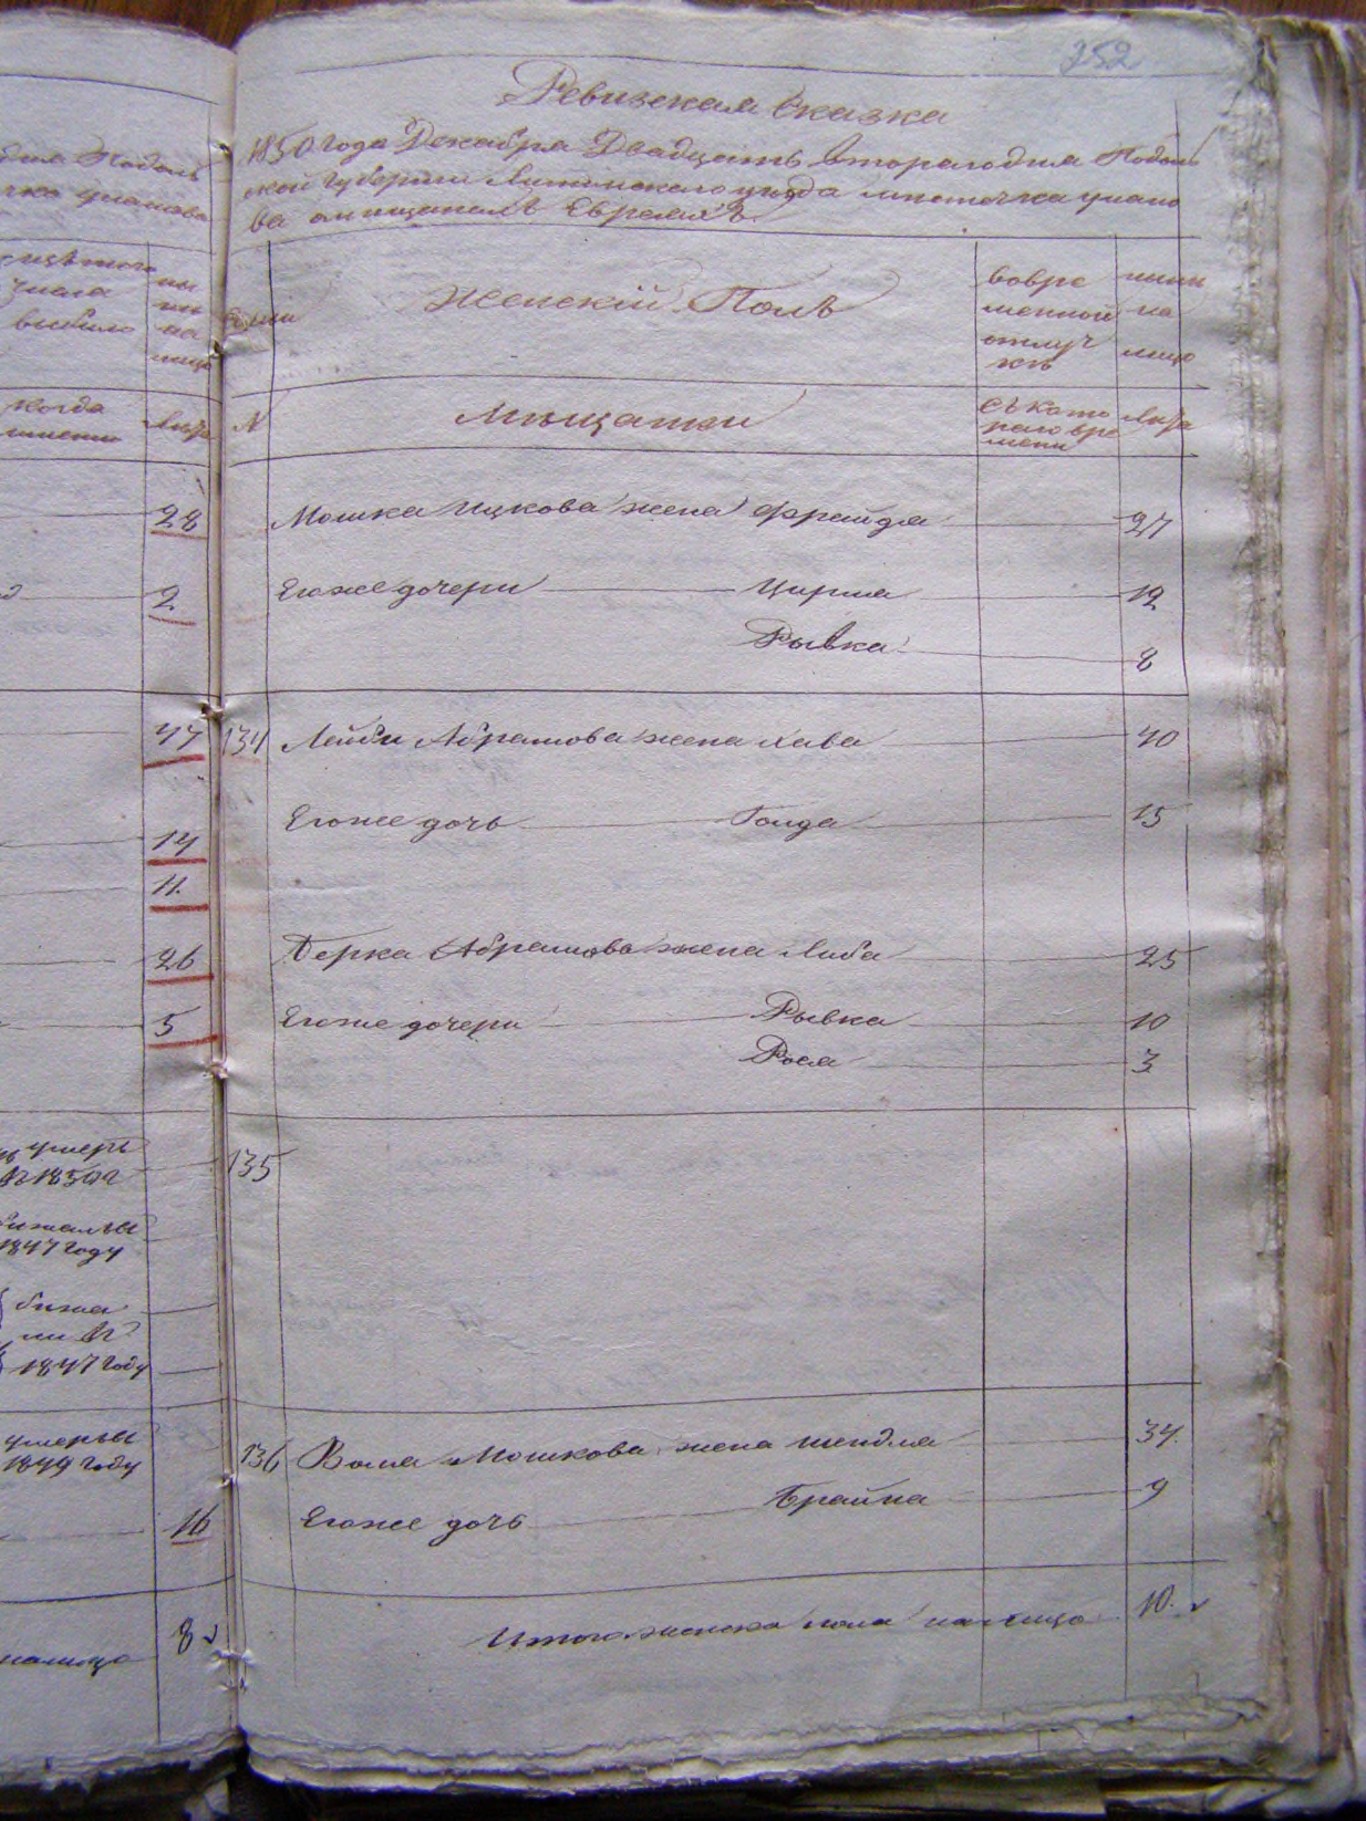 252
Ревизская Сказка
1850 года Декабря Двадцать второго дня Подоль
ской губернии Литинского уезда местечка Улано
ва о мещанахъ Евреяхъ.
Женскій Полъ
вовре
менной
отлуч
кѣ
ныне
на
лицо
№
Мещанки
съ кото
раго вре
мени
Лѣта
Мошка Ицкова жена Фрайда 27
Его же дочери Цирля 12
Рывка 8
134 Лейби Абрамова жена Хава 40
Его же дочь Голда 15
Берка Абрамова жена Либа 25
Его же дочери Рывка 10
Рося 3
135
136 Вола Мошкова жена Шендля 34.
Его же дочь Брайна 9
Итого женска пола налицо 10.
когда
Лѣта
28
2
47
14
11.
26
5
умеръ
1850 г
1847 году
бежа
ли въ
1847 году
умеръ
1849 году
16
налицо 8